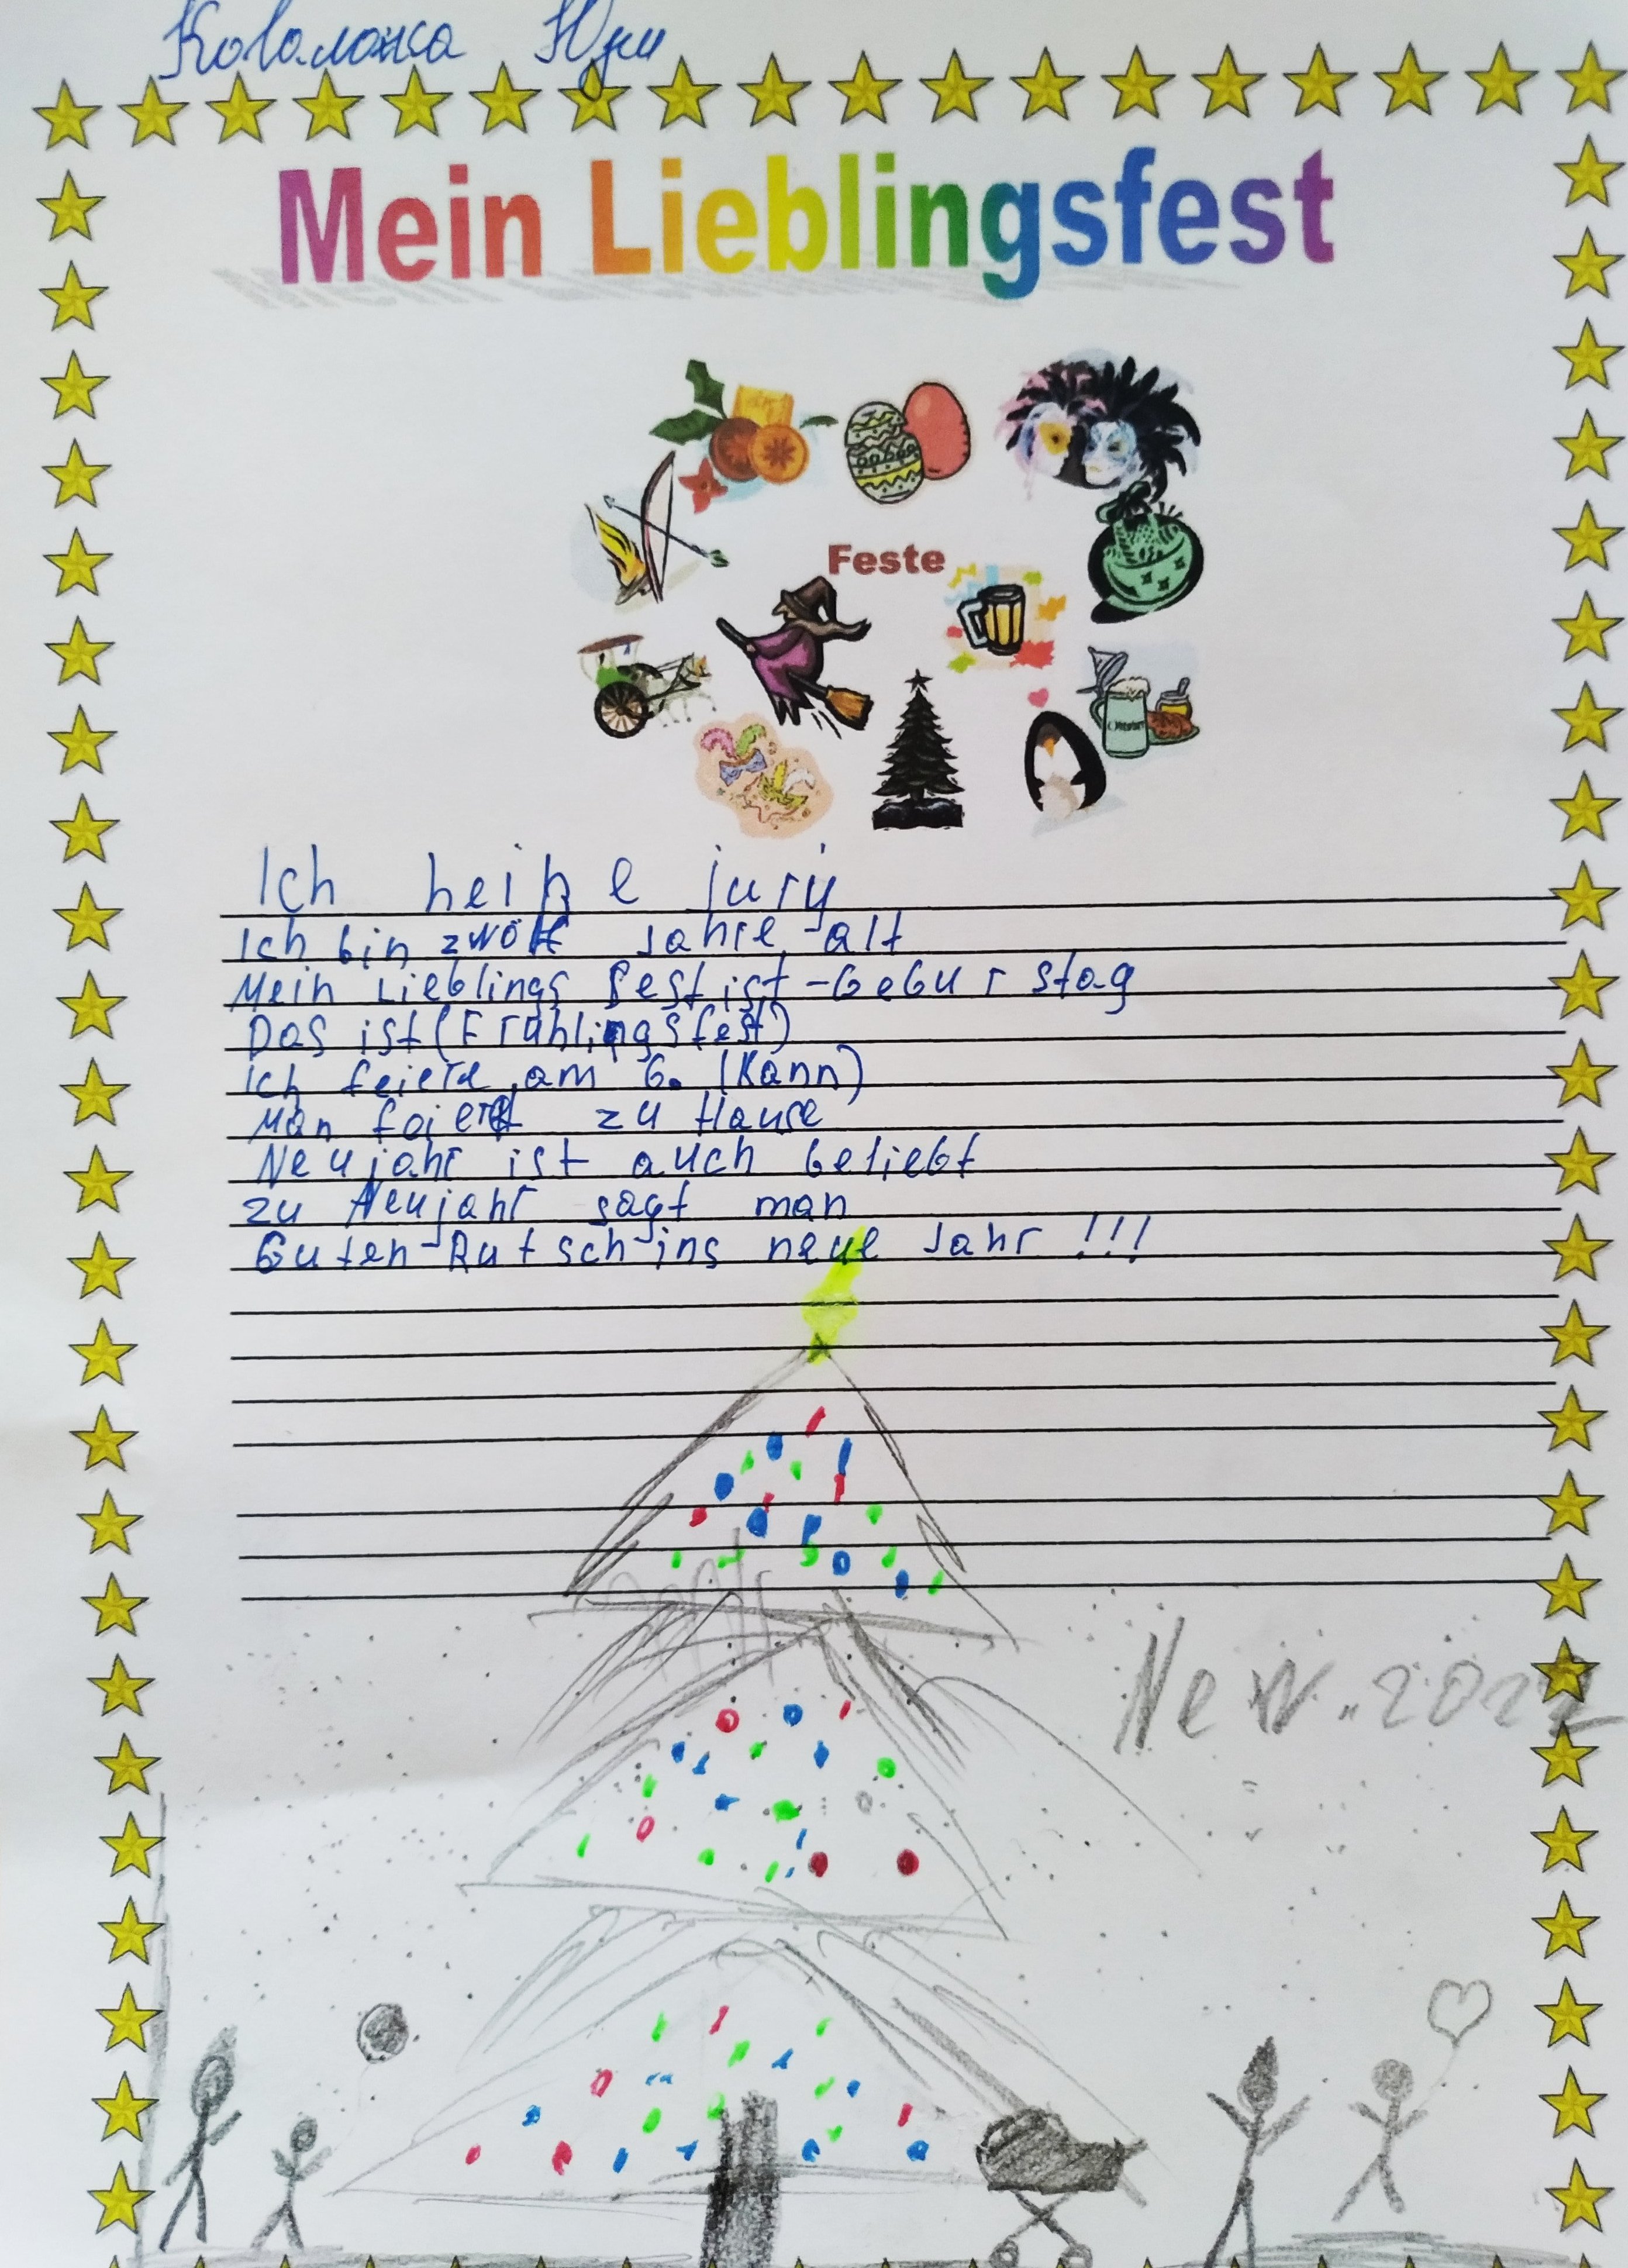 Mein Lieblingsfest
Feste
Ich heiße jury
Ich bin zwölf Jahre alt
Mein Lieblings fest ist - Geburstag
Das ist (Frühlingsfest)
Ich feiere am 6. (Kann)
Man feiert zu Hause
Neujahr ist auch beliebt
zu Neujahr sagt man
Guten-Rutsch ins neue Jahr !!!
New. 2022